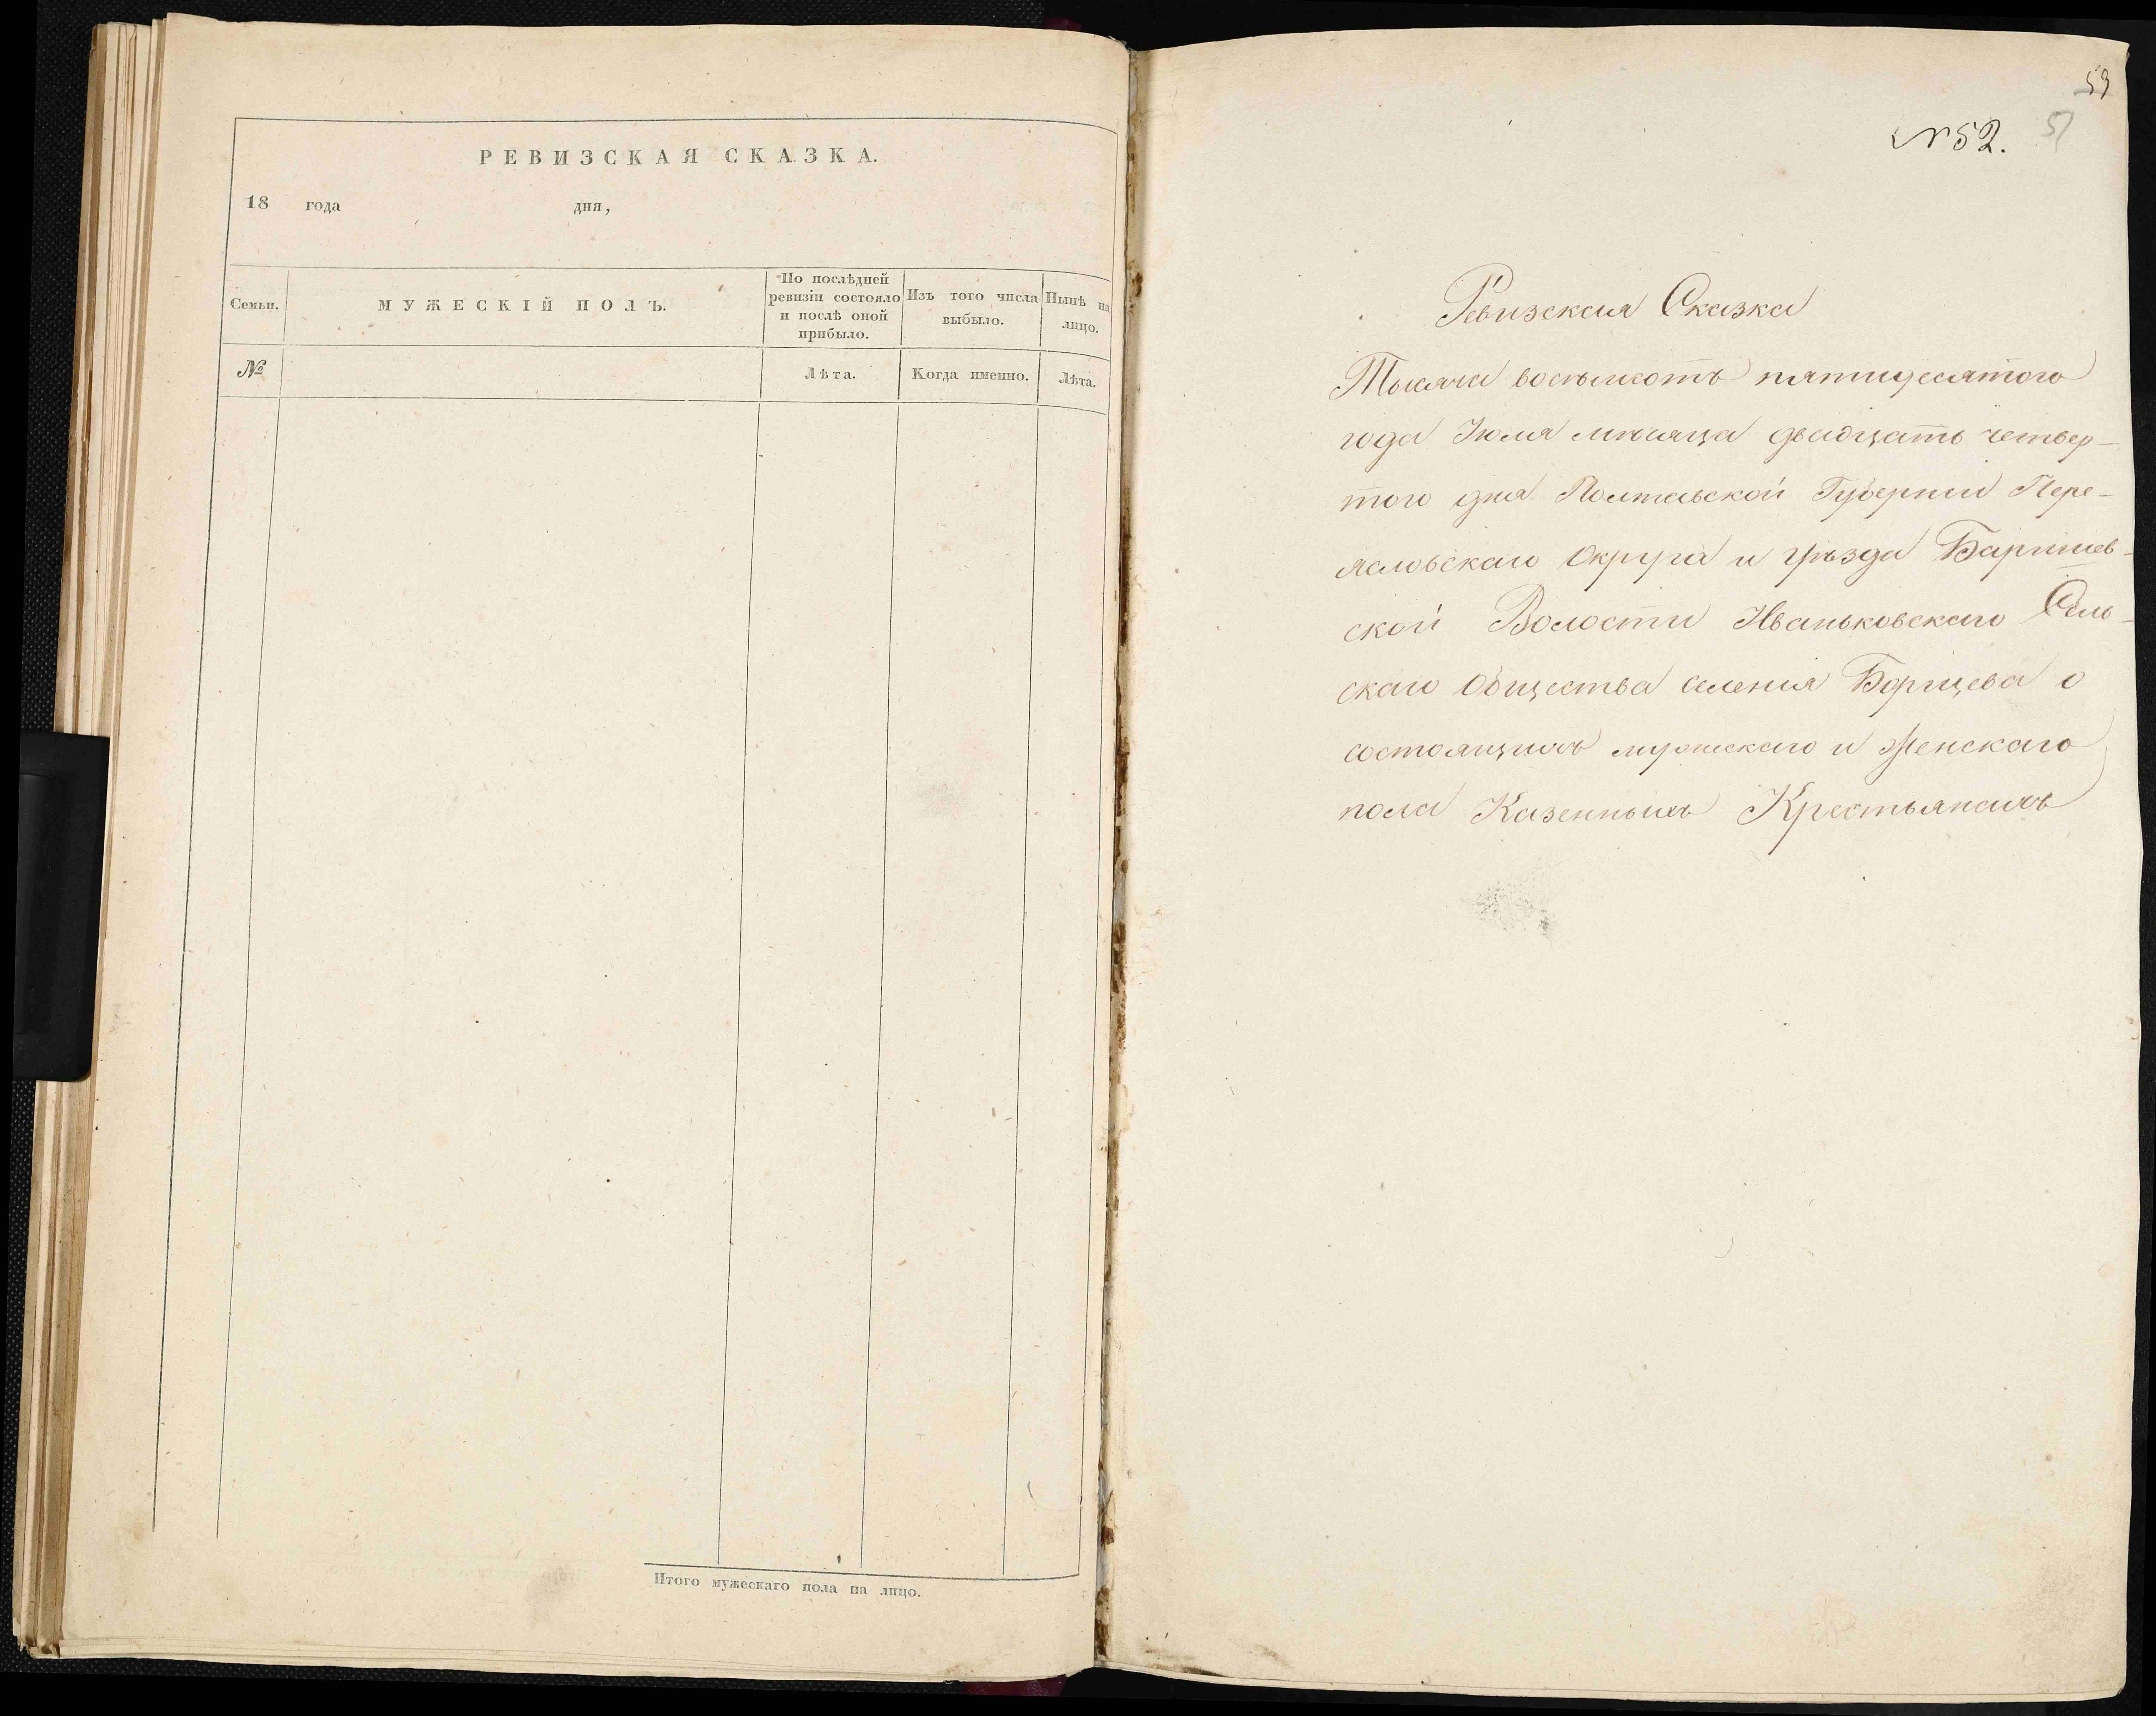 РЕВИЗСКАЯ СКАЗКА.
18 года дня,
Семьи.
МУЖЕСКІЙ ПОЛЪ.
По послѣдней ревизіи состояло и послѣ оной прибыло.
Изъ того числа выбыло.
Нынѣ на лицо.
№
Лѣта.
Когда именно.
Лѣта.
Итого мужескаго пола на лицо.
53
51
№ 52.
Ревизская Сказка
Тысяча восѣмсотъ пятидесятого
года Іюля мѣсяца двадцать четвер-
того дня Полтавской Губерніи Пере-
ясловскаго Округа и уѣзда Баришев-
ской Волости Иваньковскаго Сель-
скаго Общества селенія Борщева о
состоящихъ мужескаго и женскаго
пола Казенныхъ Крестьянахъ